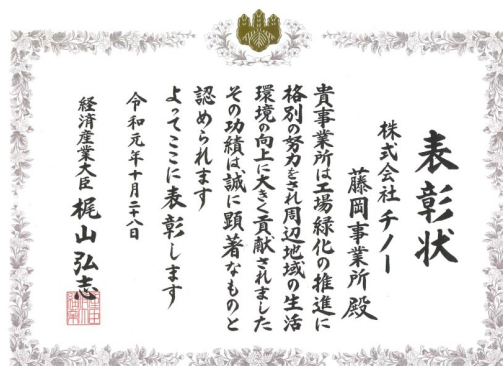 表彰状
株式会社チノー
藤岡事業所殿
貴事業所は工場緑化の推進に
格別の努力をされ周辺地域の生活
環境の向上に大きく貢献されました
その功績は誠に顕著なものと
認められます
よってここに表彰します
令和元年十月二十八日
経済産業大臣 梶山弘志